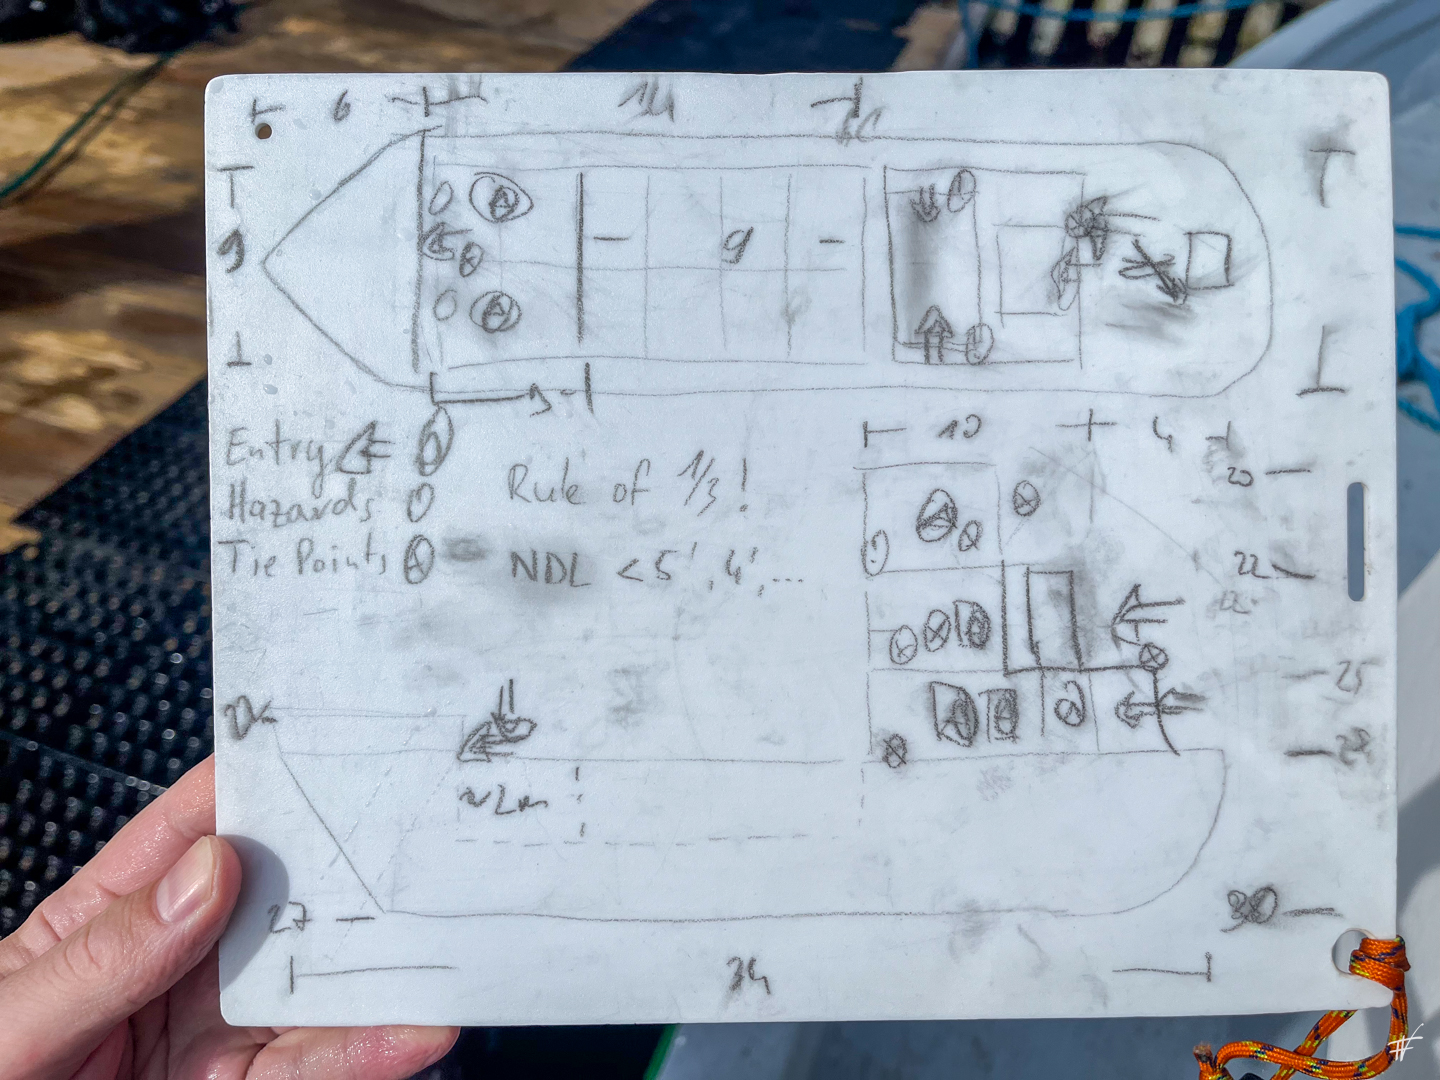 6
14
9
9
3
Entry
Hazards
Tie Points
Rule of 1/3!
NDL <5', 4', ...
10
4
20
22
25
28
~2m
27
30
34